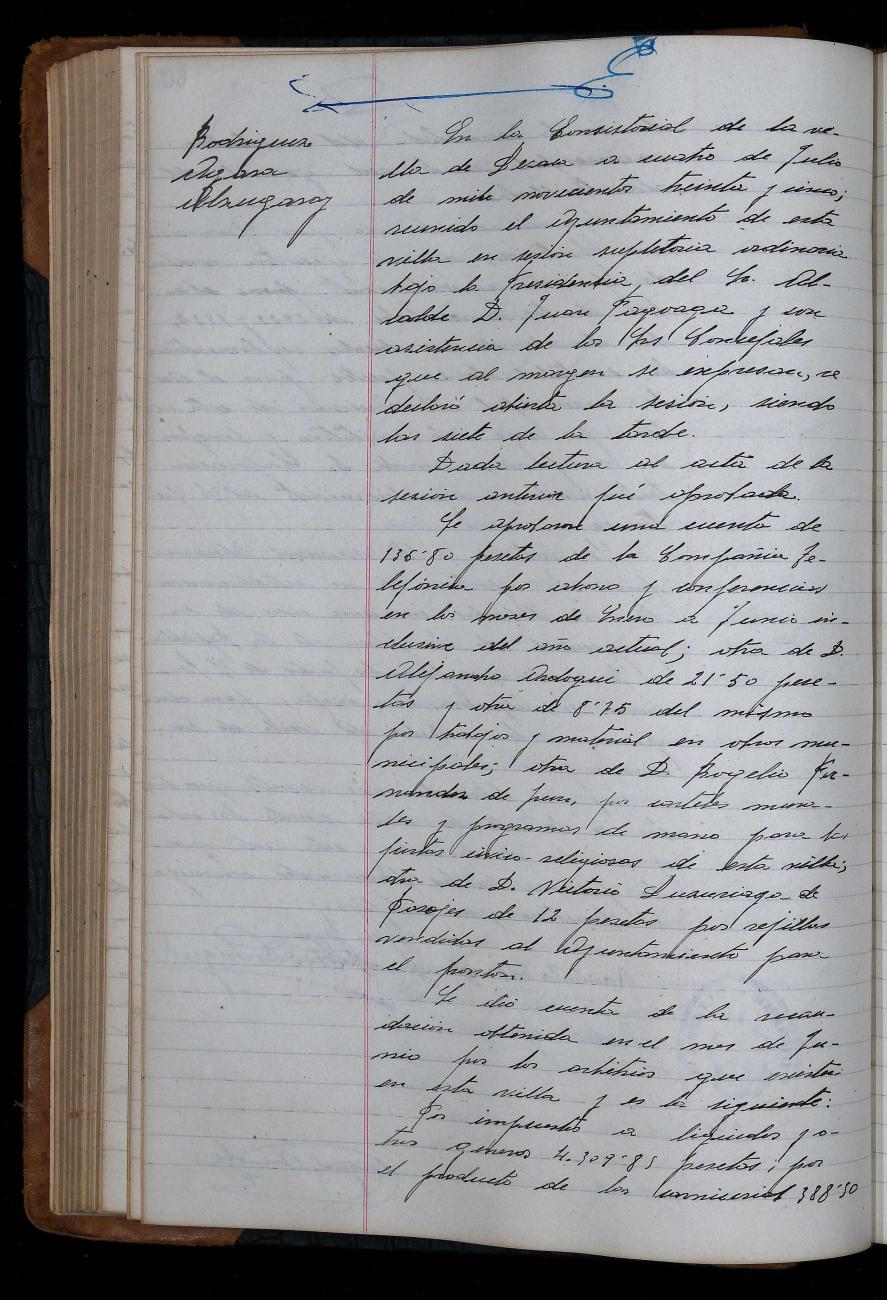 Rodriguez
Agara
Elzugaray
En la Consistorial de la vi-
lla de Lesaca a cuatro de Julio
de mil novecientos treinta y cinco;
reunido el Ayuntamiento de esta
villa en sesión supletoria ordinaria
bajo la Presidencia, del Sr. Al-
calde D. Juan Fagoaga y con
asistencia de los Srs Concejales
que al margen se expresan, se
declaró abierta la sesión, siendo
las siete de la tarde.
Dada lectura al acta de la
sesión anterior fué aprobada.
Se aprobaron una cuenta de
135'80 pesetas de la Compañia Te-
lefónica por abono y conferencias
en los meses de Enero a Junio in-
clusive del año actual; otra de D.
Alejandro Andogui de 21'50 pese-
tas y otra de 8'75 del mismo
por trabajos y material en obras mu-
nicipales; otra de D. Rogelio Fer-
nandez de por carteles mura-
les y programas de mano para las
fiestas civico-religiosas de esta villa;
otra de D. Victorio Luzuriaga de
Pasajes de 12 pesetas por rejillas
vendidas al Ayuntamiento para
el
Se dió cuenta de la recau-
dación obtenida en el mes de Ju-
nio por los arbitrios que existen
en esta villa y es la siguiente:
Por impuesto a liquidos y o-
tros generos 4.309'85 pesetas; por
el producto de las carnicerias 388'50